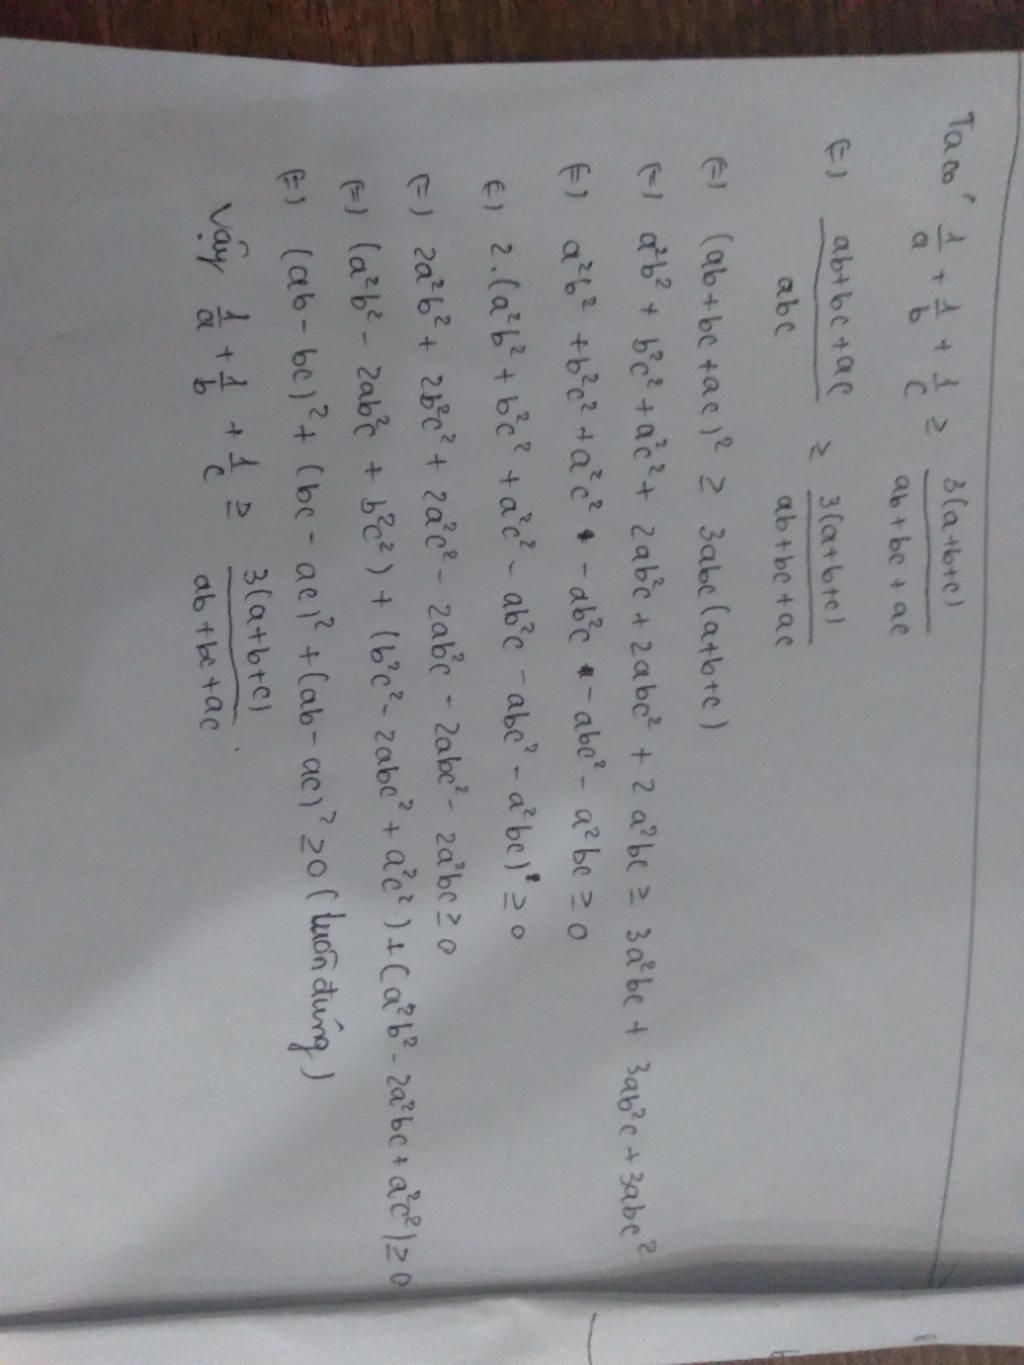 Ta có 1/a + 1/b + 1/c ≥ 3(a+b+c)/ab+bc+ac
(=) ab+bc+ac/abc ≥ 3(a+b+c)/ab+bc+ac
(=) (ab+bc+ac)² ≥ 3abc(a+b+c)
(=) a²b² + b²c² + a²c² + 2ab²c + 2abc² + 2a²bc ≥ 3a²bc + 3ab²c + 3abc²
(=) a²b² + b²c² + a²c² - ab²c - abc² - a²bc ≥ 0
(=) 2.(a²b² + b²c² + a²c² - ab²c - abc² - a²bc) ≥ 0
(=) 2a²b² + 2b²c² + 2a²c² - 2ab²c - 2abc² - 2a²bc ≥ 0
(=) (a²b² - 2ab²c + b²c²) + (b²c² - 2abc² + a²c²) + (a²b² - 2a²bc + a²c²) ≥ 0
(=) (ab - bc)² + (bc - ac)² + (ab - ac)² ≥ 0 (luôn đúng)
Vậy 1/a + 1/b + 1/c ≥ 3(a+b+c)/ab+bc+ac.